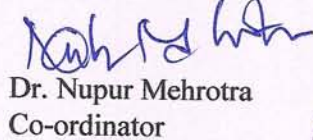 Dr. Nupur Mehrotra
Co-ordinator